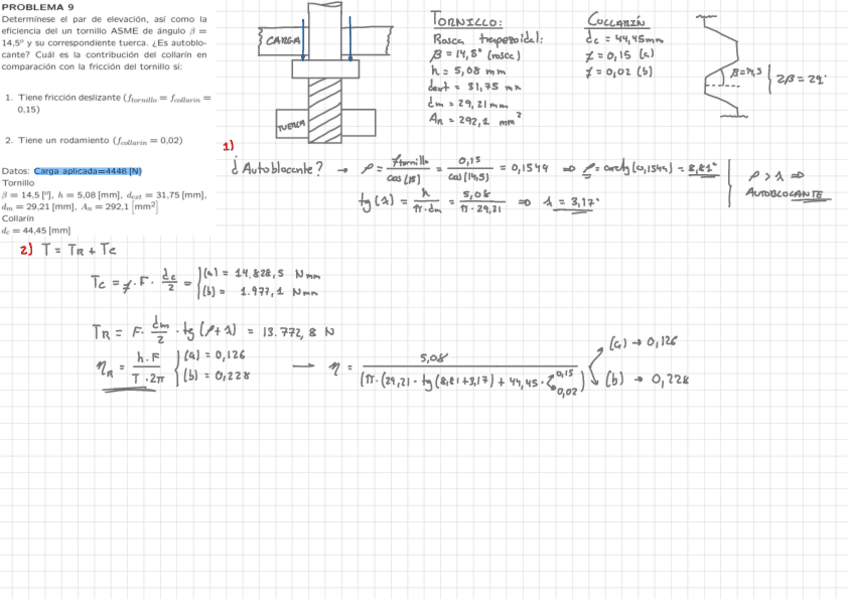 PROBLEMA 9
Determínese el par de elevación, así como la
eficiencia del un tornillo ASME de ángulo β =
14,5º y su correspondiente tuerca. ¿Es autoblo-
cante? Cuál es la contribución del collarín en
comparación con la fricción del tornillo si:
1. Tiene fricción deslizante (f_tornillo = f_collarin =
0,15)
2. Tiene un rodamiento (f_collarin = 0,02)
Datos: Carga aplicada=4448 [N]
Tornillo
β = 14,5 [º], h = 5,08 [mm], d_ext = 31,75 [mm],
d_m = 29,21 [mm], A_n = 292,1 [mm²]
Collarín
d_c = 44,45 [mm]
CARGA
TUERCA
TORNILLO:
Rosca trapezoidal:
β = 14,5° (rosca)
h = 5,08 mm
dext = 31,75 mm
dm = 29,21 mm
An = 292,1 mm²
COLLARÍN
dc = 44,45mm
f = 0,15 (a)
f = 0,02 (b)
β=14,5 } 2β = 29°
1)
¿Autoblocante? → ρ = f tornillo / cos(β) = 0,15 / cos(14,5) = 0,1549 ⇒ ρ = arctg(0,1549) = 8,81°
tg(λ) = h / π·dm = 5,08 / π·29,21 ⇒ λ = 3,17°
ρ > λ ⇒
AUTOBLOCANTE
2) T = TR + TC
TC = f·F·dc/2 = { (a) = 14.828,5 Nmm
(b) = 1.977,1 Nmm
TR = F·dm/2·tg(ρ+λ) = 13.772,8 N
ηR = h·F / T·2π { (a) = 0,126
(b) = 0,228
→ η = 5,08 / (π·(29,21·tg(8,81+3,17) + 44,45·{0,15 0,02)
(a) → 0,126
(b) → 0,228